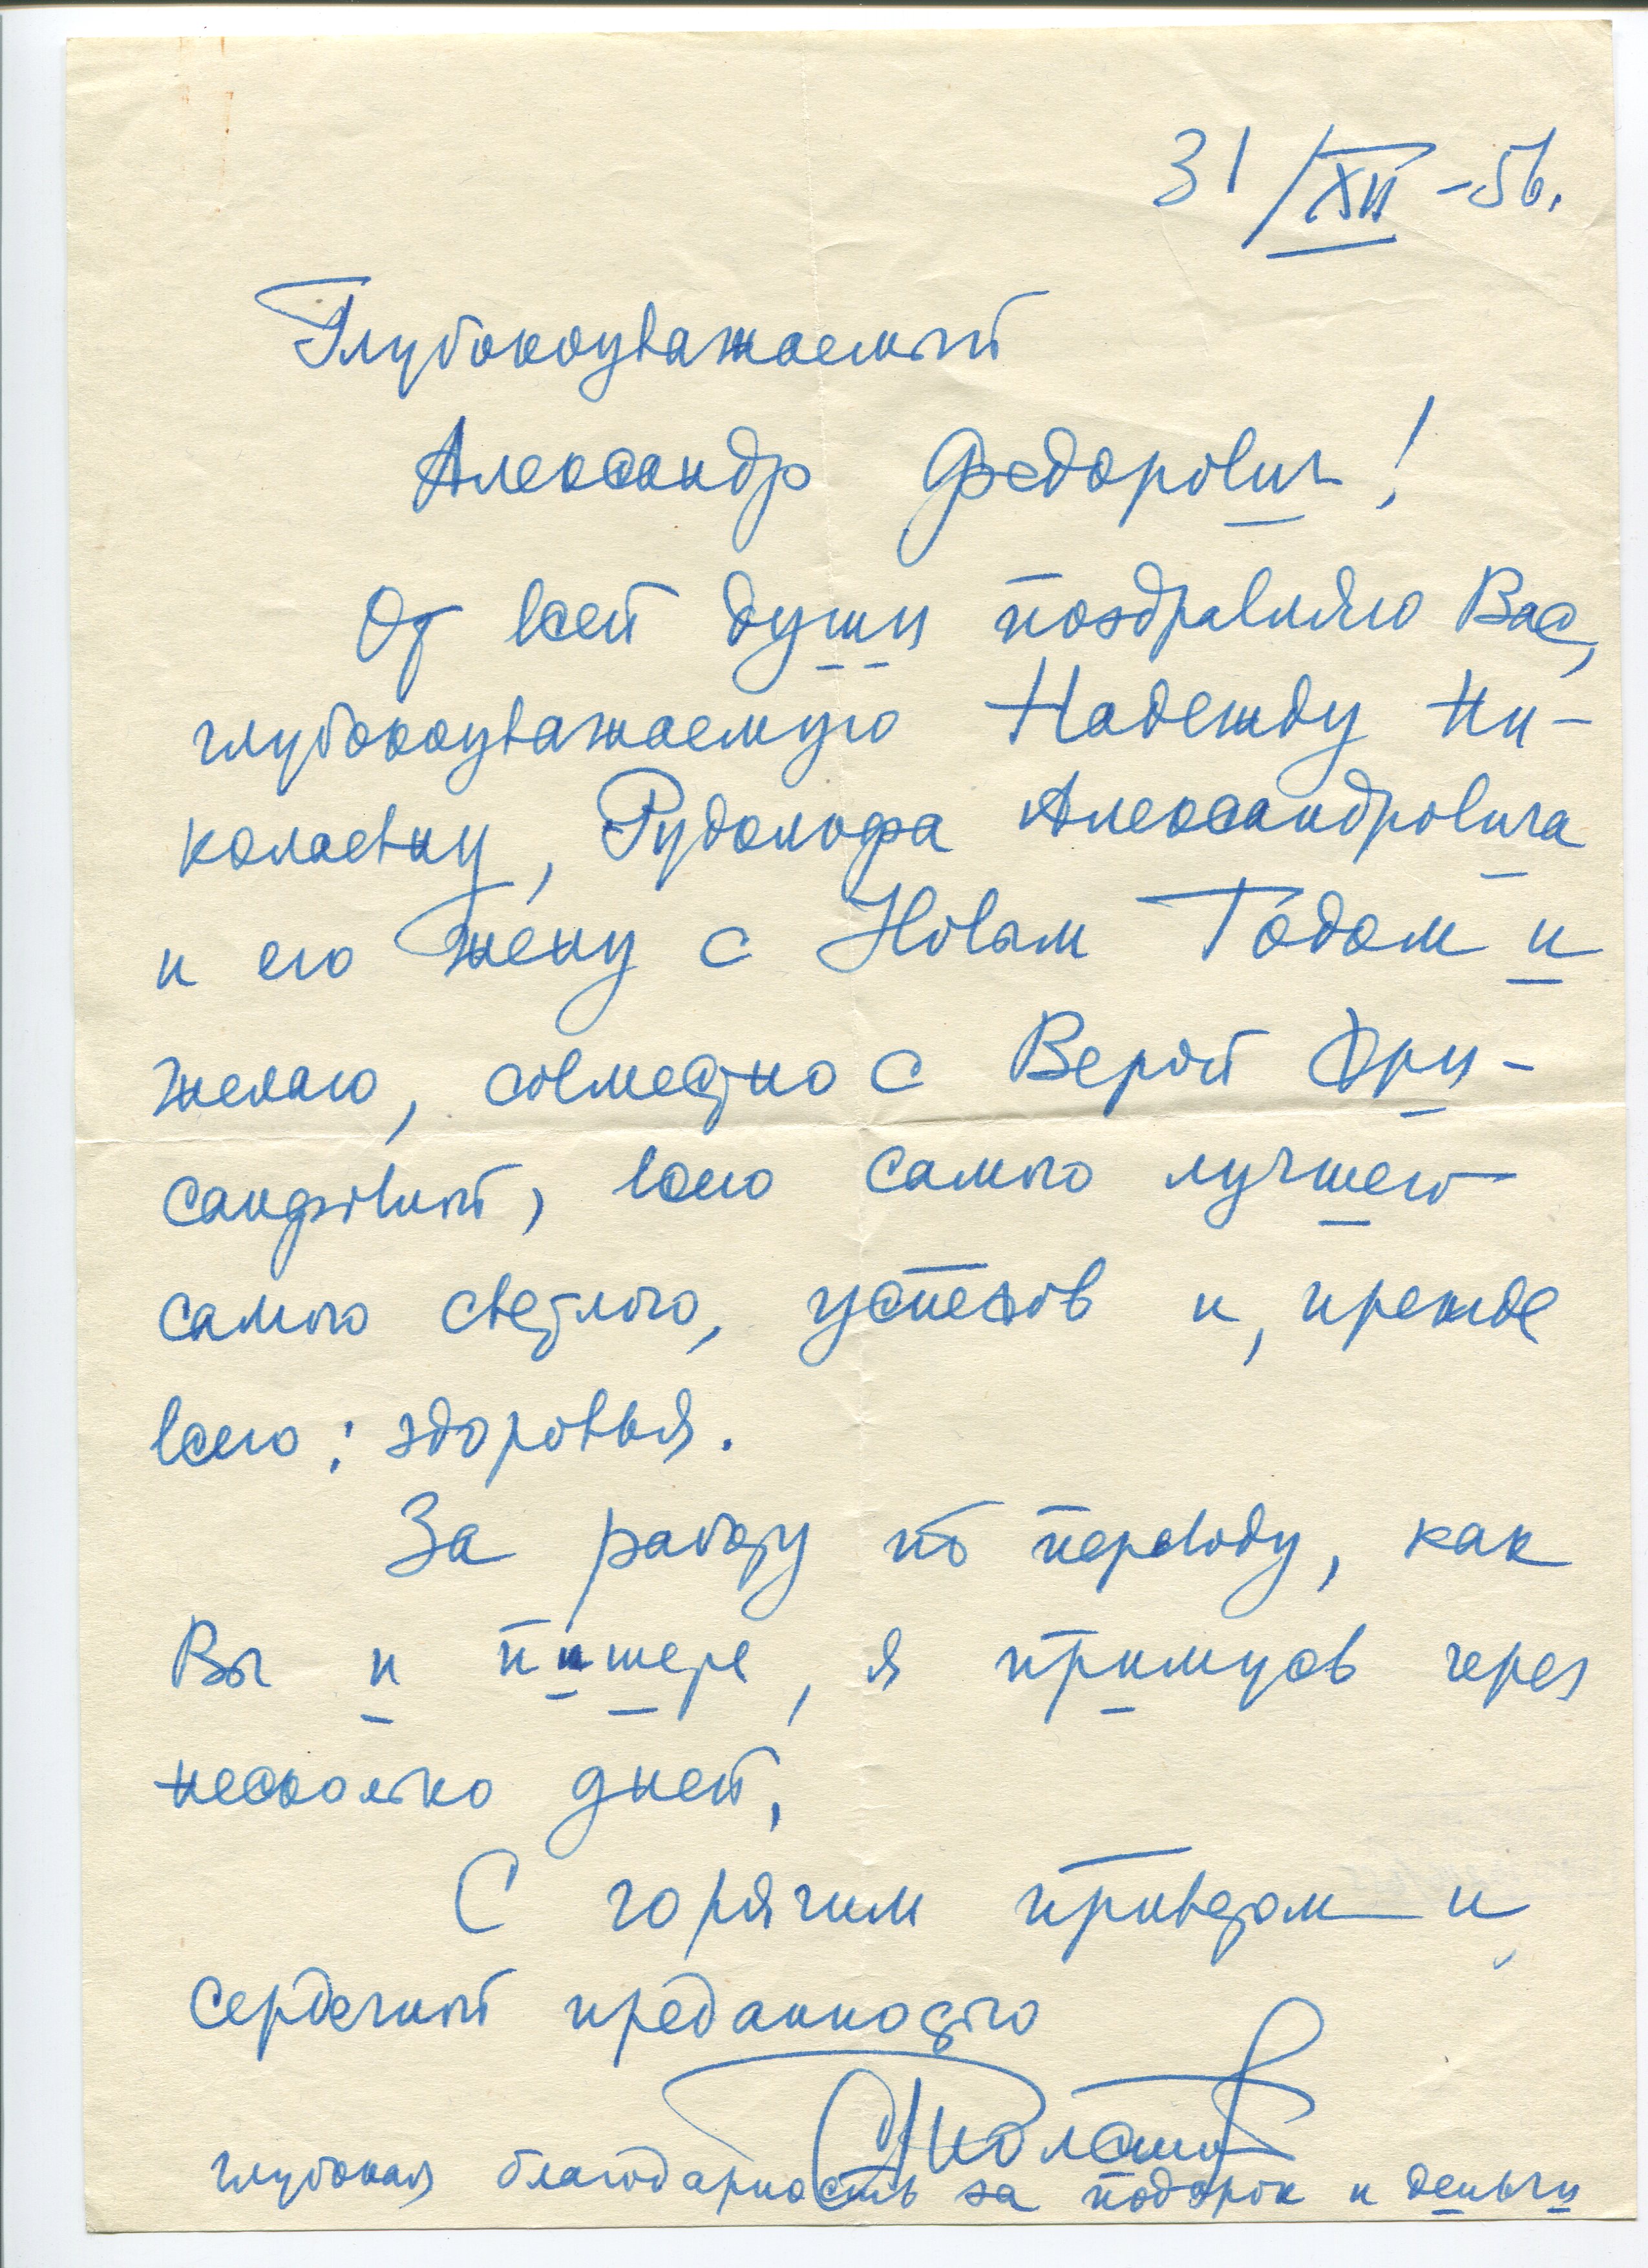 31/XII-56.
Глубокоуважаемый
Александр Федорович!
От всей души поздравляю Вас,
глубокоуважаемую Надежду Ни-
колаевну, Рудольфа Александровича
и его жену с Новым Годом и
желаю, совместно с Верой Хри-
санфовной, всего самого лучшего
самого светлого, успехов и, прежде
всего: здоровья.
За работу по переводу, как
Вы и пишете, я примусь через
несколько дней.
С горячим приветом и
сердечной преданностью
глубокая благодарность за подарок и деньги